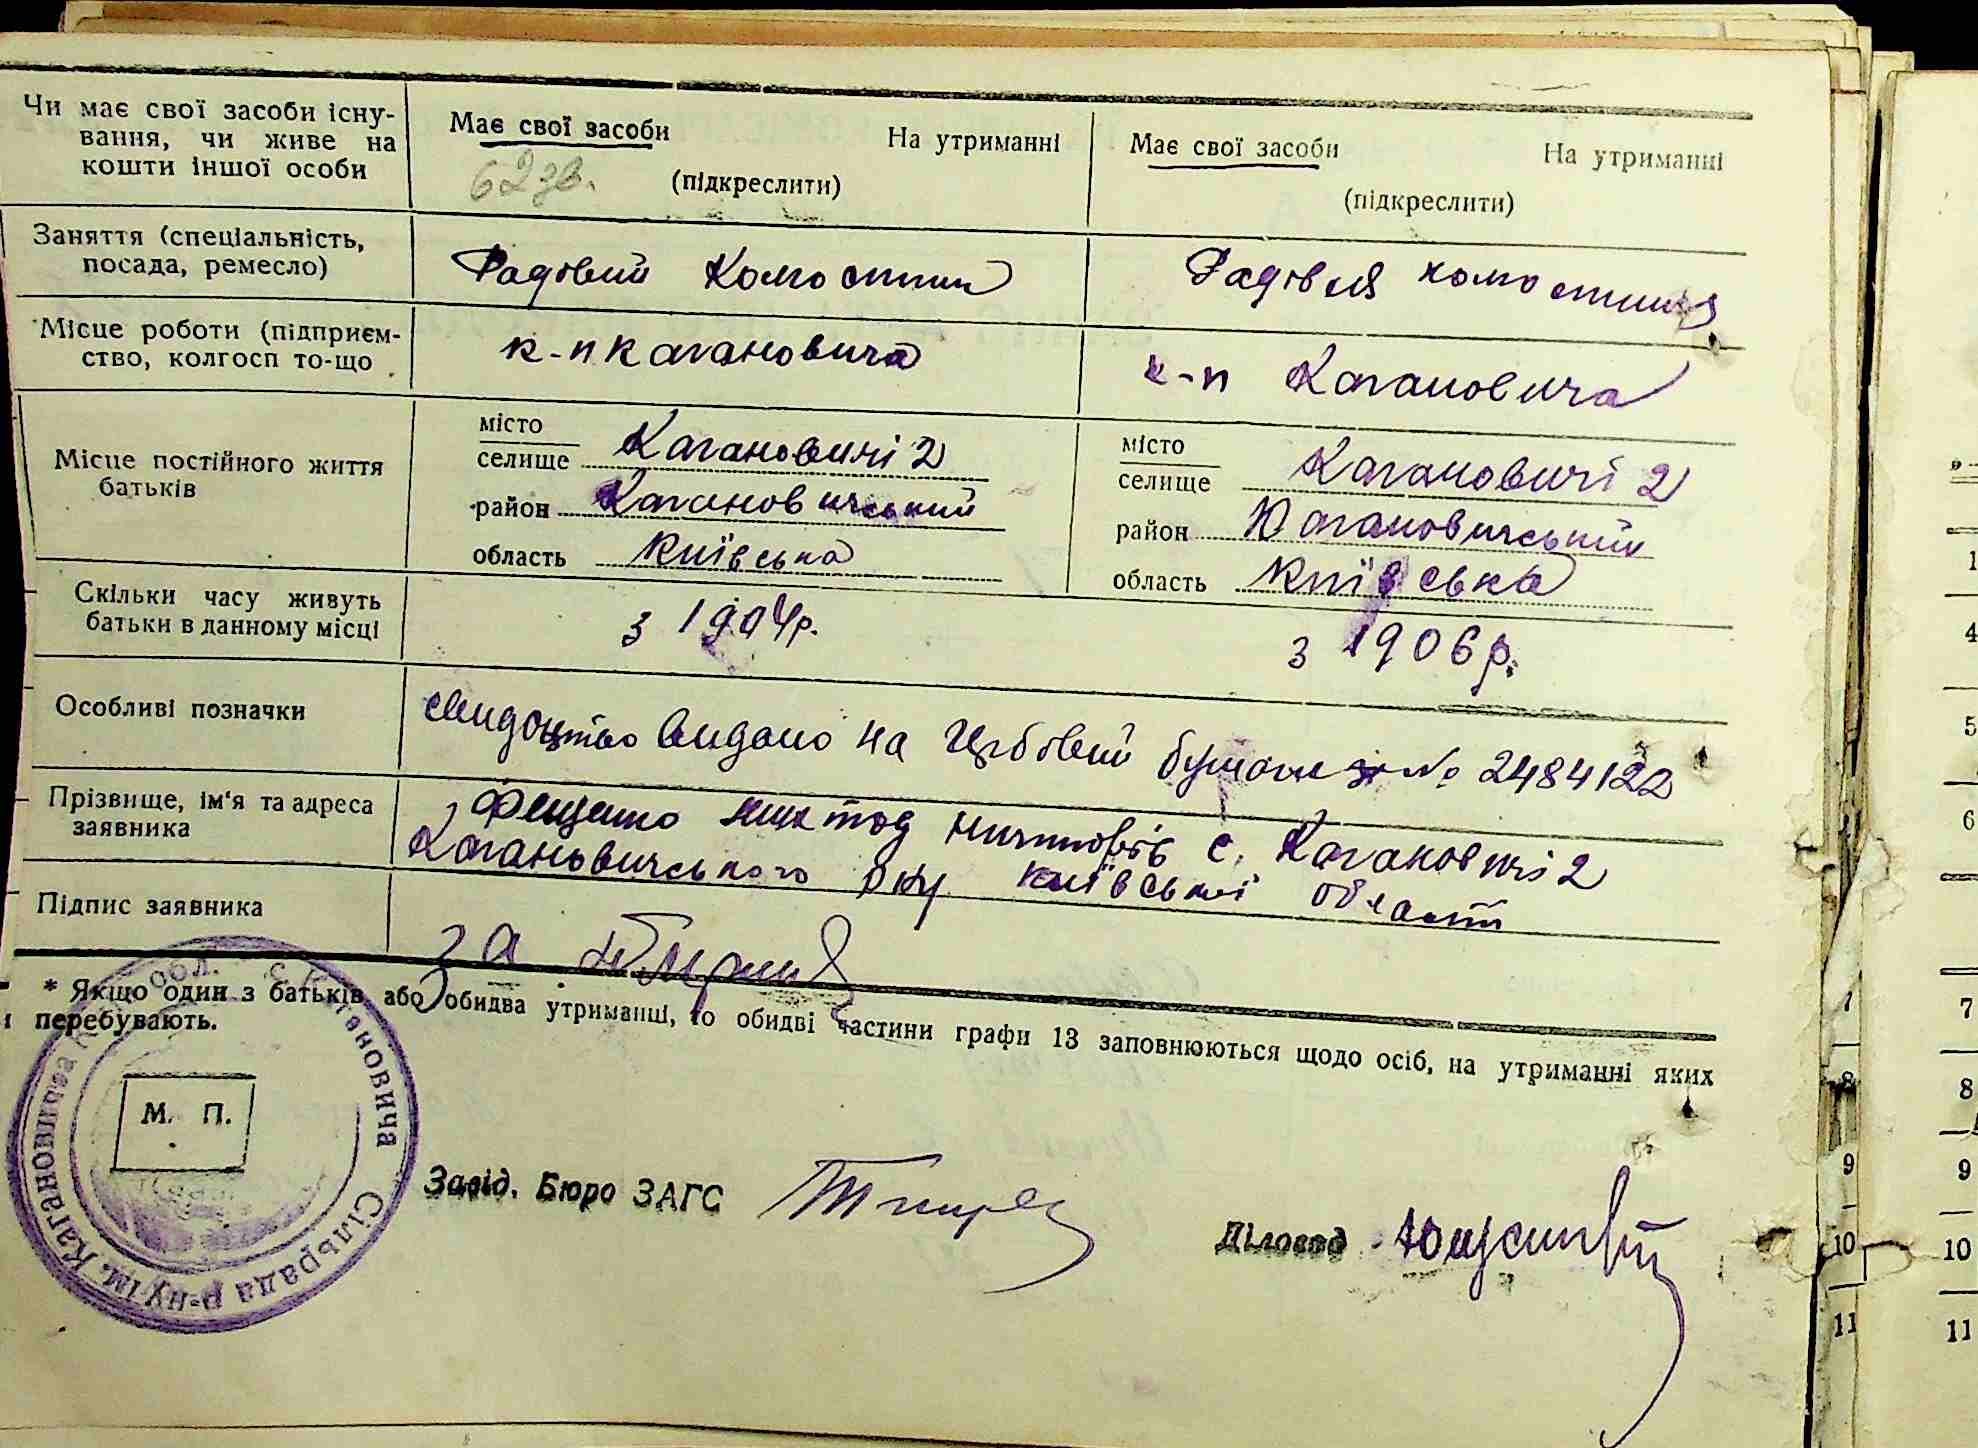 Чи має свої засоби існу-
вання, чи живе на
кошти іншої особи
Має свої засоби На утриманні
62 зв. (підкреслити)
Має свої засоби На утриманні
(підкреслити)
Заняття (спеціальність,
посада, ремесло)
Радовий
Радівая
Місце роботи (підприєм-
ство, колгосп то-що
к-п Кагановича
к-п Кагановича
Місце постійного життя
батьків
місто
селище Кагановичі 2
район Кагановичський
область Київська
місто
селище Кагановичі 2
район Кагановичський
область Київська
Скільки часу живуть
батьки в данному місці
з 1904р.
з 1906р.
Особливі позначки
видано на No 2484122
Прізвище, ім'я та адреса
заявника
с. Кагановичі 2
Кагановичського р-ну Київської області
Підпис заявника
за
* Якщо один з батьків, або обидва утриманці, то обидві частини графи 13 заповнюються щодо осіб, на утриманні яких
перебувають.
обл. с. Кагановича Сільрада р-ну ім. Кагановича
М. П.
Завід. Бюро ЗАГС
Діловод
1
4
5
6
7
8
9
10
11
7
8
9
10
11